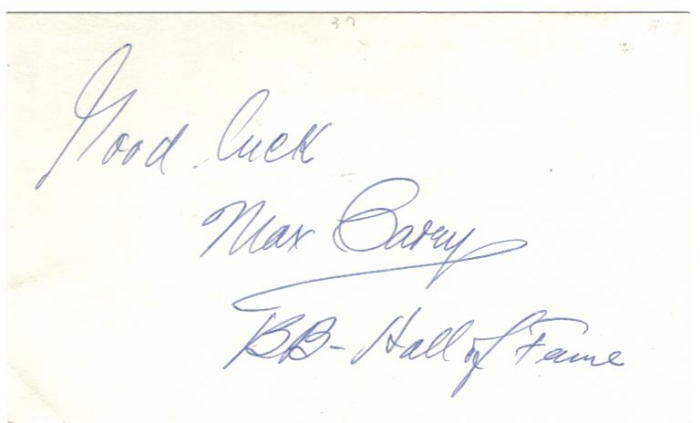 37
Good luck
Max Carey
BB- Hall of Fame